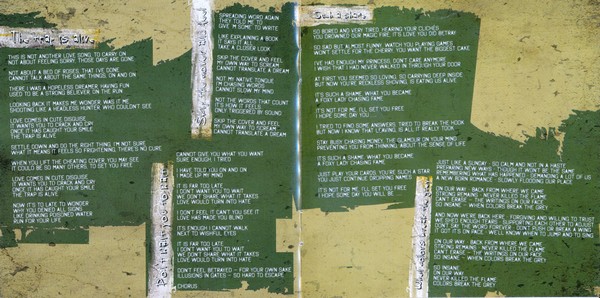 The trap is alive
THIS IS NOT ANOTHER LOVE SONG, TO CARRY ON
NOT ABOUT FEELING SORRY, THOSE DAYS ARE GONE.
NOT ABOUT A BED OF ROSES, THAT I'VE GONE
CANNOT TALK ABOUT THE SAME THINGS, ON AND ON
THERE I WAS A HOPELESS DREAMER, HAVING FUN
USED TO BE A STRONG BELIEVER ON THE RUN
LOOKING BACK IT MAKES ME WONDER WAS IT ME
SHOOTING LIKE A HEADLESS HUNTER WHO COULDN'T SEE
LOVE COMES IN CUTE DISGUISE
IT WANTS YOU TO CRACK AND CRY
ONCE IT HAS CAUGHT YOUR SMILE
THE TRAP IS ALIVE
SETTLE DOWN AND DO THE RIGHT THING, I'M NOT SURE
WHAT IT MEANS IT FEELS SO FRIGHTENING, THERE'S NO CURE
WHEN YOU LIFT THE CHEATING COVER YOU MAY SEE
IT COULD BE SO MANY OTHERS, TO SET YOU FREE
LOVE COMES IN CUTE DISGUISE
IT WANTS YOU TO CRACK AND CRY
ONCE IT HAS CAUGHT YOUR SMILE
THE TRAP IS ALIVE
NOW IT'S TOO LATE TO WONDER
WHY YOU DENIED ALL SIGNS
LIKE DRINKING POISONED WATER
RUN FOR YOUR LIFE
SPREADING WORD AGAIN
THEY TOLD ME TO
GIVE 'M SOME TO WRITE
LIKE EXPLAINING A BOOK
IT SAYS IT ALL
TAKE A CLOSER LOOK
SKIP THE COVER AND FEEL
MY OWN WAY TO SCREAM
CANNOT TRANSLATE A DREAM
NOT MY NATIVE TONGUE
I'M CHASING WORDS
CANNOT SLOW MY MIND
NOT THE WORDS THAT COUNT
IT'S HOW IT FEELS
ONLY TRIGGERED BY SOUND
SKIP THE COVER AND FEEL
MY OWN WAY TO SCREAM
CANNOT TRANSLATE A DREAM
CANNOT GIVE YOU WHAT YOU WANT
SURE ENOUGH I TRIED
I HAVE TOLD YOU ON AND ON
MADE UP MY MIND
IT IS FAR TOO LATE
I DON'T WANT YOU TO WAIT
WE DON'T SHARE WHAT IT TAKES
LOVE WOULD TURN INTO HATE
I DON'T FEEL IT CAN'T YOU SEE IT
LOVE HAS MADE YOU BLIND
IT'S ENOUGH I CANNOT WALK
NEXT TO WISHFUL EYES
IT IS FAR TOO LATE
I DON'T WANT YOU TO WAIT
WE DON'T SHARE WHAT IT TAKES
LOVE WOULD TURN INTO HATE
DON'T FEEL BETRAYED - FOR YOUR OWN SAKE
ILLUSIONS IN GATES - SO HARD TO ESCAPE
CHORUS
Such a shame
SO BORED AND VERY TIRED HEARING YOUR CLICHÉS
YOU DISAVOWED OUR MAGIC FIRE, IT'S LOVE YOU DID BETRAY
SO SAD BUT ALMOST FUNNY, WATCH YOU PLAYING GAMES
WON'T SETTLE FOR THE CHERRY, YOU WANT THE BIGGEST CAKE
I'VE HAD ENOUGH MY PRINCESS, DON'T CARE ANYMORE
I WISH THAT I HAD NEVER WALKED IN THROUGH YOUR DOOR
AT FIRST YOU SEEMED SO LOVING, SO CARING DEEP INSIDE
BUT NOW YOU'RE RECKLESS SHOVING, IT'S EATING US ALIVE
IT'S SUCH A SHAME, WHAT YOU BECAME
A FOXY LADY CHASING FAME
IT'S NOT FOR ME, I'LL SET YOU FREE
I HOPE SOME DAY YOU ...
I TRIED TO FIND SOME ANSWERS, TRIED TO BREAK THE HOOK
BUT NOW I KNOW THAT LEAVING IS ALL IT REALLY TOOK
STAY BUSY CHASING MONEY, THE GLAMOUR ON YOUR MIND
PREVENTING YOU FROM THINKING, ABOUT THE SENSE OF LIFE
IT'S SUCH A SHAME, WHAT YOU BECAME
A FOXY LADY CHASING FAME
JUST PLAY YOUR CARDS, YOU'RE SUCH A STAR
YOU JUST CONTINUE DROPPING NAMES
IT'S NOT FOR ME, I'LL SET YOU FREE
I HOPE SOME DAY YOU WILL BE
JUST LIKE A SUNDAY - SO CALM AND NOT IN A HASTE
PREPARING NEW WAYS - THOUGH IT WON'T BE THE SAME
REMEMBERING WHAT HAS HAPPENED - DEMANDING LOTS OF PAIN
A NEW BORN ROMANCE - SLOWLY FLOODING OUR PLACE
ON OUR WAY - BACK FROM WHERE WE CAME
STRONG REMAINS - NEVER KILLED THE FLAME
CAN'T ERASE - THE WRITINGS ON OUR FACE
SO INSANE - WHEN COLORS BREAK THE GREY
AND NOW WE'RE BACK HERE - FORGIVING AND WILLING TO TRUST
WE SHED ENOUGH TEARS - SUPPORTING EACH OTHER TO ADJUST
DON'T SAY THE WORD FOREVER - DON'T PUSH OR BREAK A WIND
IF GOD IT'S ON PACE - WE'LL KNOW WHEN TO JUMP AND TO SING
ON OUR WAY - BACK FROM WHERE WE CAME
STRONG REMAINS - NEVER KILLED THE FLAME
CAN'T ERASE - THE WRITINGS ON OUR FACE
SO INSANE - WHEN COLORS BREAK THE GREY
SO INSANE
ON OUR WAY
NEVER KILLED THE FLAME
COLORS BREAK THE GREY